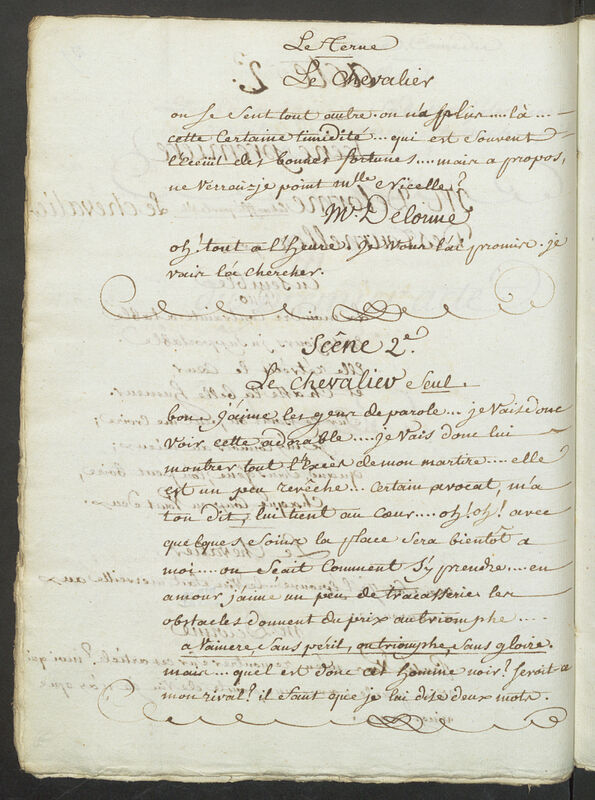 Le Terne
Le Chevalier
on se sent tout autre. on n'a plus.... là...
cette certaine timidité... qui est souvent
l'écueil des bonnes fortunes.... mais a propos,
ne verrai-je point mlle
Mr. Delorme
oh! tout a l'heure je vous l'ai promise. je
vais la chercher.
Scêne 2e.
Le Chevalier seul.
bon, j'aime les gens de parole... je vais donc
voir cette adorable.... je vais donc lui
montrer tout l'Excès de mon martire.... elle
est un peu revêche... certain avocat, m'a
t'on dit, lui tient au cœur.... oh! oh! avec
quelques soins la place sera bientôt a
moi.... on scait comment s'y prendre.... en
amour j'aime un peu de tracasserie les
obstacles donnent du prix au triomphe....
a vaincre sans péril, on triomphe sans gloire.
mais... quel est donc cet homme noir? serait-ce
mon rival? il faut que je lui dise deux mots.